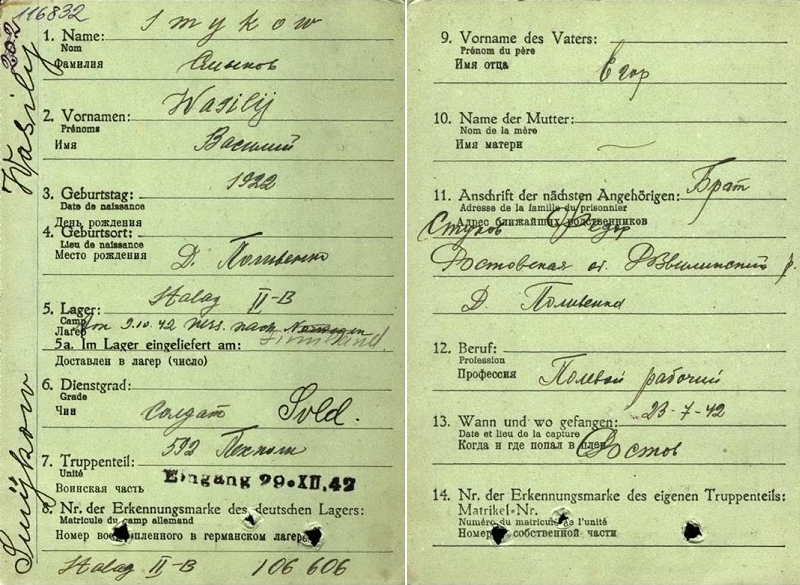 116832
202
Wasily
Smÿkow
1. Name: Smykow
Nom
Фамилия Смыков
2. Vornamen: Wasilij
Prénoms
Имя Василий
3. Geburtstag: 1922
Date de naissance
День рождения
4. Geburtsort:
Lieu de naissance
Место рождения Д. Поливенко
5. Lager: Stalag II-B
Camp
Лагер Von 9.10.42 vers. nach Norwegen
5a. Im Lager eingeliefert am: Finnland.
Доставлен в лагер (число)
6. Dienstgrad:
Grade
Чин солдат Sold.
7. Truppenteil: 592 Пехполк
Unité
Воинская часть Eingang 29.XII.42
8. Nr. der Erkennungsmarke des deutschen Lagers:
Matricule du camp allemand
Номер военнопленного в германском лагере
Stalag II-B 106 606
9. Vorname des Vaters:
Prénom du père
Имя отца Егор
10. Name der Mutter:
Nom de la mère
Имя матери
11. Anschrift der nächsten Angehörigen: Брат
Adresse de la famille du prisonnier
Адрес ближайших родственников
Федор
Ростовская р.
Д. Поливенко
12. Beruf:
Profession
Профессия Полевой рабочий
13. Wann und wo gefangen: 23-7-42
Date et lieu de la capture
Когда и где попал в плен Ростов
14. Nr. der Erkennungsmarke des eigenen Truppenteils:
Matrikel-Nr.
Numéro du matricule de l'unité
Номер собственной части